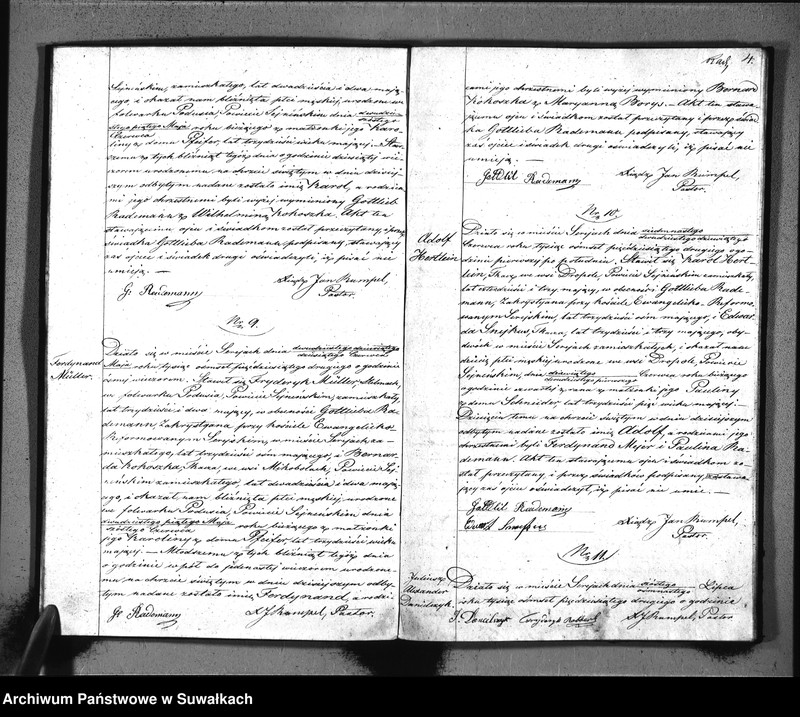 Sejneńskim, zamieszkałego, lat dwadzieścia i dwa mają-
cego, i okazał nam bliźnięta płci męskiej, urodzone w
folwarku Podusia, Powiecie Sejneńskim dnia
dwudziestego piątego Maja roku bieżącego z małżonki jego Karo-
szóstego Czerwca
liny z domu Pfeifer, lat trzydzieści wieku mającej. — Star-
szemu z tych bliźniąt tegoż dnia o godzinie dziesiątej wie-
czorem urodzonemu na chrzcie świętym w dniu dzisiej-
szym odbytym nadane zostało imię Karol, a rodzica-
mi jego chrzestnemi byli wyżej wymieniony Gottlieb
Rademann z Wilhelminą Kokoszka. Akt ten
stawającemu ojcu i świadkom został przeczytany, i przez
świadka Gottlieba Rademann podpisany, stawający
zaś ojciec i świadek drugi oświadczyli, iż pisać nie
umieją. —
G. Rademann
Xiądz Jan Rumpel,
Pastor.
No 9.
Ferdynand
Müller.
Działo się w mieście Serejach dnia dwudziestego dziewiątego
dziesiątego Czerwca
Maja roku tysiąc ośmset pięćdziesiątego drugiego o godzinie
wieczorem. Stawił się Fryderyk Müller, Młynarz,
w folwarku Podusia, Powiecie Sejneńskim, zamieszkały,
lat trzydzieści i dwa mający, w obecności Gottlieba Ra-
demann, Zakrystyana przy kościele Ewangelicko-
Reformowanym Serejskim, w mieście Serejach za-
mieszkałego, lat trzydzieści ośm mającego, i Bernar-
da Kokoszka, Tkacza, we wsi Mikabolach, Powiecie Sej-
neńskim zamieszkałego, lat dwadzieścia i dwa mają-
cego, i okazał nam bliźnięta płci męskiej, urodzone
we folwarku Podusia, Powiecie Sejneńskim dnia
dwudziestego piątego Maja roku bieżącego z małżonki
szóstego Czerwca
jego Karoliny z domu Pfeifer, lat trzydzieści wieku
mającej. — Młodszemu z tych bliźniąt tegoż dnia
o godzinie w pół do jedenastej wieczorem urodzone-
mu na chrzcie świętym w dniu dzisiejszym odby-
tym nadane zostało imię Ferdynand, a rodzi-
G. Rademann
X. J. Rumpel, Pastor.
4.
cami jego chrzestnemi byli wyżej wymieniony Bernard
Kokoszka z Maryanną Borys. Akt ten stawa-
jącemu ojcu i świadkom został przeczytany i przez świad-
ka Gottlieba Rademann podpisany, stawający
zaś ojciec i świadek drugi oświadczyli, iż pisać nie
umieją. —
Gottlib Rademann
Xiądz Jan Rumpel,
Pastor.
No 10.
Adolf
Hertlein
Działo się w mieście Serejach dnia siedmnastego
dwudziestego dziewiątego
Czerwca roku tysiąc ośmset pięćdziesiątego drugiego o go-
dzinie pierwszej po południu. Stawił się Karol Hert-
lein, Tkacz we wsi Dropole, Powiecie Sejneńskim zamieszkały,
lat czterdzieści i trzy mający, w obecności Gottlieba Rade-
mann, Zakrystyana przy kościele Ewangelicko-Reformo-
wanym Serejskim, lat trzydzieści ośm mającego, i Edwar-
da Snejkus, Tkacza, lat trzydzieści i trzy mającego, oby-
dwóch w mieście Serejach zamieszkałych, i okazał nam
dziecię płci męskiej urodzone we wsi Dropole, Powiecie
Sejneńskim, dnia dziewiątego Czerwca roku bieżącego
dwudziestego pierwszego
o godzinie czwartej z rana z małżonki jego Pauliny
z domu Schneider, lat trzydzieści pięć wieku mającej. —
Dziecięciu temu na chrzcie świętym w dniu dzisiejszym
odbytym nadane zostało imię Adolf, a rodzicami jego
chrzestnemi byli Ferdynand Mejer i Paulina Ra-
demann. Akt ten stawającemu ojcu i świadkom zo-
stał przeczytany, i przez świadków podpisany, stawa-
jący zaś ojciec oświadczył, iż pisać nie umie. —
Gottlib Rademann
Xiądz Jan Rumpel,
Pastor.
No 11.
Juliusz
Alexander
Danielczyk
Działo się w mieście Serejach dnia szóstego Lipca
ośmnastego
roku tysiąc ośmset pięćdziesiątego drugiego o godzinie
X. J. Rumpel, Pastor
Archiwum Państwowe w Suwałkach